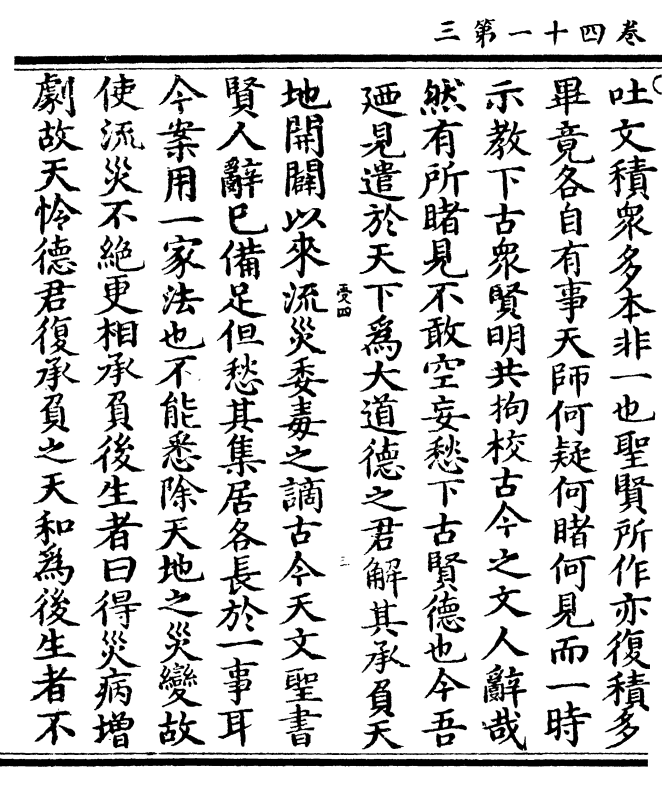 卷四十一第三
吐文積衆多本非一也聖賢所作亦復積多
畢竟各自有事天師何疑何睹何見而一時
示教下古衆賢明共拘校古今之文人辭哉
然有所睹見不敢空妄愁下古賢德也今吾
迺見遣於天下爲大道德之君解其承負天
地開闢以來流災委毒之謫古今天文聖書
賢人辭已備足但愁其集居各長於一事耳
今案用一家法也不能悉除天地之災變故
使流災不絕更相承負後生者曰得災病增
劇故天怜德君復承負之天和爲後生者不
受四
三